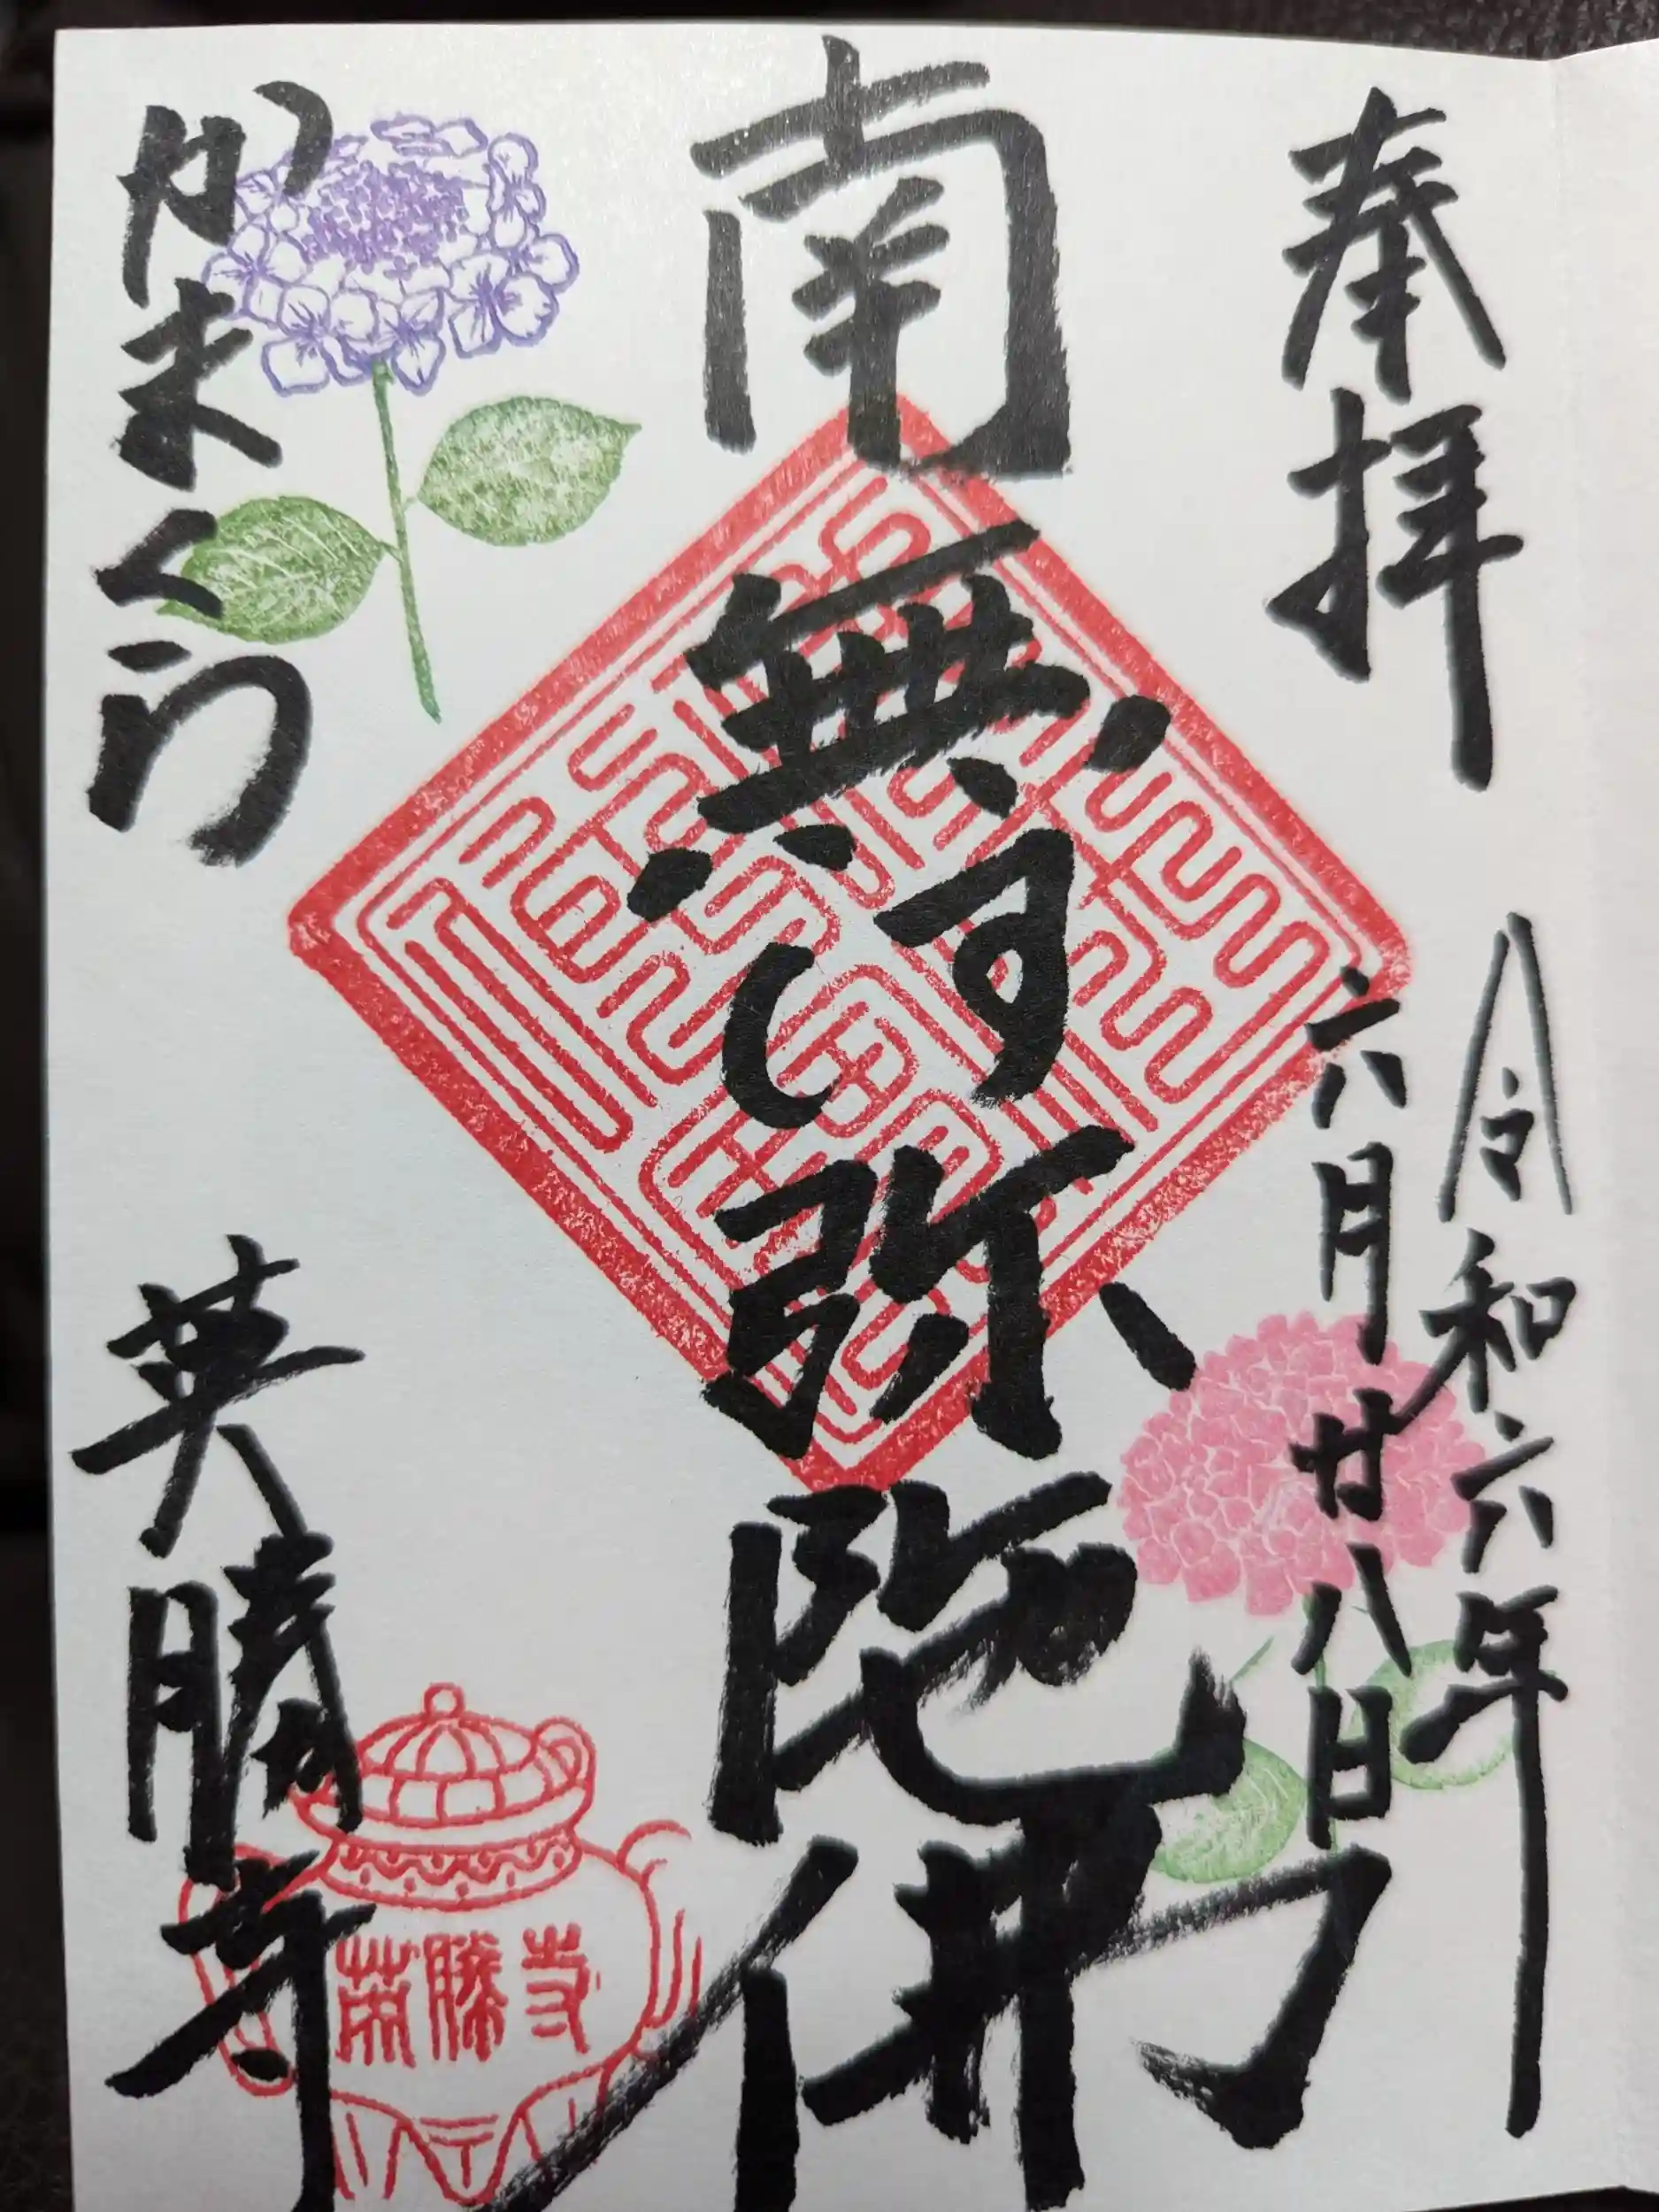 奉拝
令和六年
六月廿八日
南無阿弥陀佛
か末くら
英勝寺
英勝寺